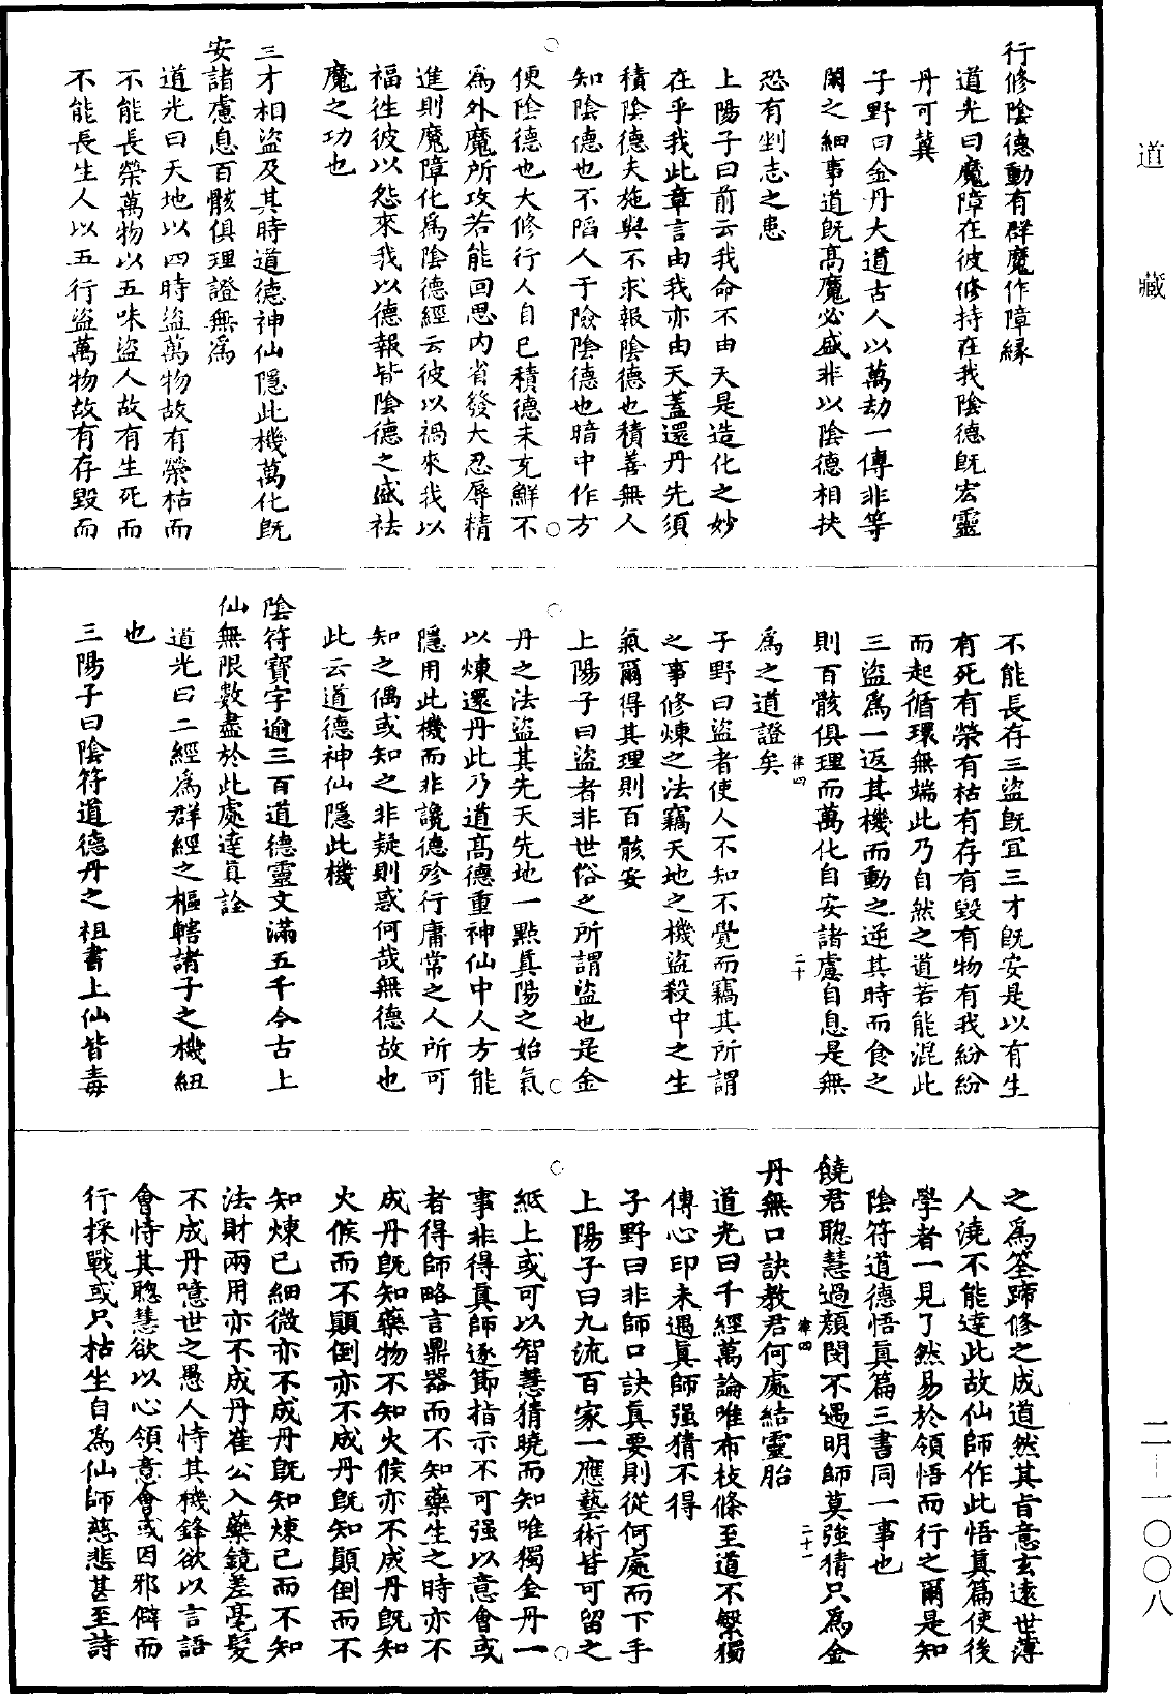 道藏
二—一〇〇八
行修陰德動有群魔作障緣
道光曰魔障在彼修持在我陰德既宏靈
丹可冀
子野曰金丹大道古人以萬劫一傳非等
閑之細事道既高魔必盛非以陰德相扶
恐有剉志之患
上陽子曰前云我命不由天是造化之妙
在乎我此章言由我亦由天蓋還丹先須
積陰德夫施與不求報陰德也積善無人
知陰德也不陷人于險陰德也暗中作方
便陰德也大修行人自已積德未充鮮不
為外魔所攻若能回思內省發大忍辱精
進則魔障化為陰德經云彼以禍來我以
福徃彼以怨來我以德報皆陰德之盛祛
魔之功也
三才相盜及其時道德神仙隱此機萬化既
安諸慮息百骸俱理證無為
道光曰天地以四時盜萬物故有榮枯而
不能長榮萬物以五味盜人故有生死而
不能長生人以五行盜萬物故有存毀而
不能長存三盜既冝三才既安是以有生
有死有榮有枯有存有毀有物有我紛紛
而起循環無端此乃自然之道若能混此
三盜為一返其機而動之逆其時而食之
則百骸俱理而萬化自安諸慮自息是無
律四 二十
為之道證矣
子野曰盜者使人不知不覺而竊其所謂
之事修煉之法竊天地之機盜殺中之生
氣爾得其理則百骸安
上陽子曰盜者非世俗之所謂盜也是金
丹之法盜其先天先地一點真陽之始氣
以煉還丹此乃道高德重神仙中人方能
隱用此機而非讒德殄行庸常之人所可
知之偶或知之非疑則惑何哉無德故也
此云道德神仙隱此機
陰符寶字逾三百道德靈文滿五千今古上
仙無限數盡於此處達真詮
道光曰二經為群經之樞轄諸子之機紐
也
三陽子曰陰符道德丹之祖書上仙皆毒
之為筌蹄修之成道然其旨意玄遠世薄
人澆不能達此故仙師作此悟真篇使後
學者一見了然易於領悟而行之爾是知
陰符道德悟真篇三書同一事也
饒君聦慧過顏閔不遇明師莫強猜只為金
律四 二十一
丹無口訣教君何處結靈胎
道光曰千經萬論唯布枝條至道不繁獨
傳心印未遇真師强猜不得
子野曰非師口訣真要則從何處而下手
上陽子曰九流百家一應藝術皆可留之
紙上或可以智慧猜曉而知唯獨金丹一
事非得真師逐節指示不可强以意會或
者得師略言鼎器而不知藥生之時亦不
成丹既知藥物不知火候亦不成丹既知
火候而不顛倒亦不成丹既知顛倒而不
知煉已細微亦不成丹既知煉已而不知
法財兩用亦不成丹崔公入藥鏡差毫髮
不成丹噫世之愚人恃其機鋒欲以言語
會恃其聦慧欲以心領意會或因邪僻而
行採戰或只枯坐自為仙師慈悲甚至詩